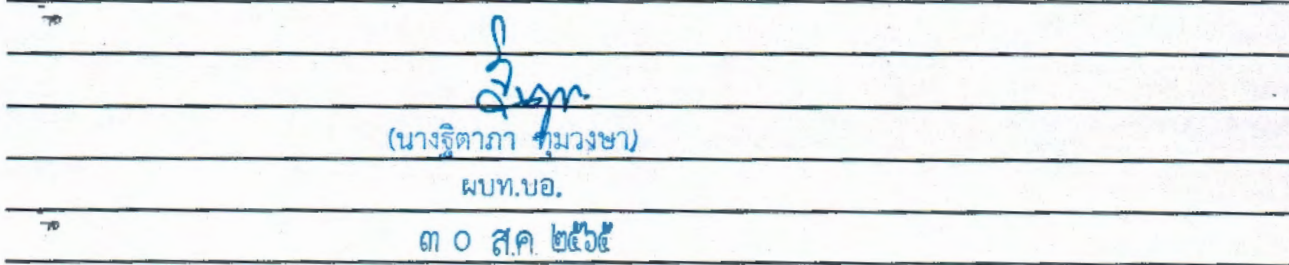 (นางฐิตาภา ทุมวงษา)
ผบท.บอ.
๓ ๐ ส.ค. ๒๕๖๕